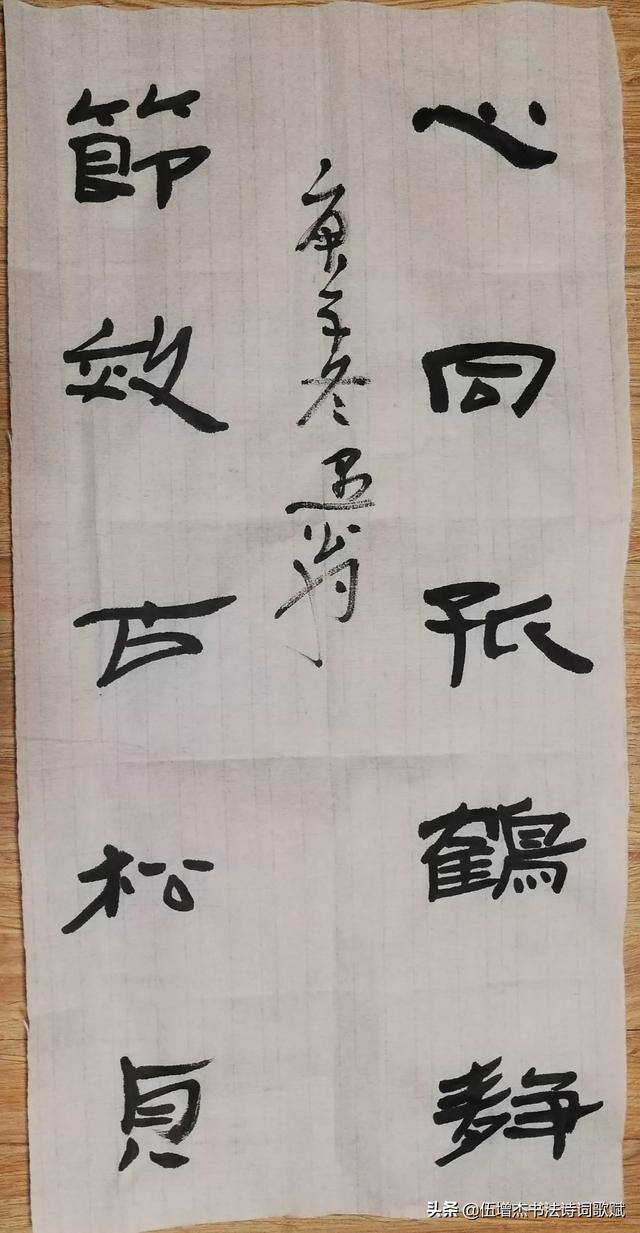 心同孤鶴靜
庚子冬愚翁
節效古松貞
头条 @伍增杰书法诗词歌赋